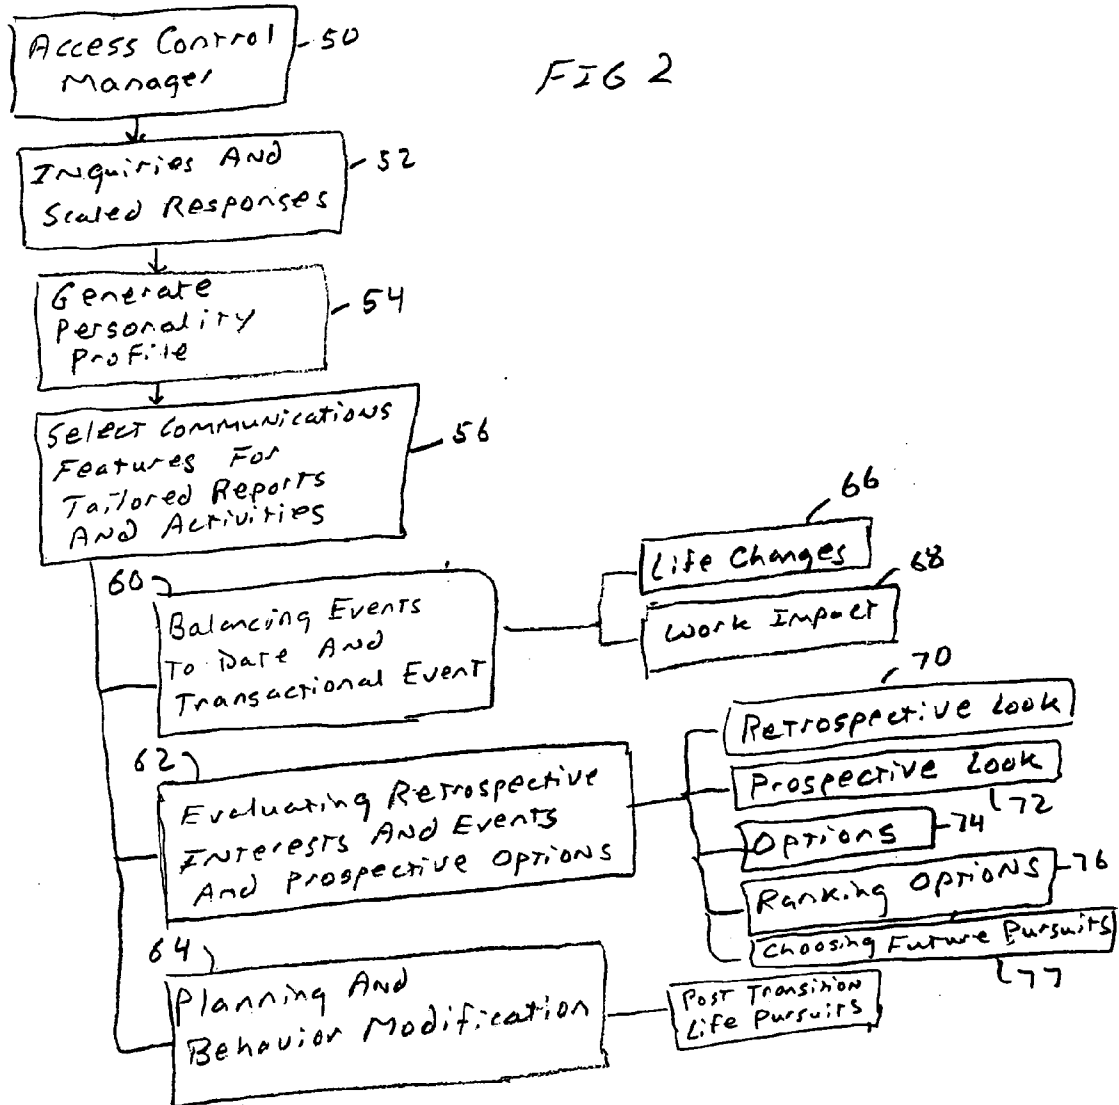 FIG 2
Access Control
Manager
50
Inquiries And
Scaled Responses
52
Generate
Personality
Profile
54
Select Communications
Features For
Tailored Reports
And Activities
56
60
Balancing Events
To Date And
Transactional Event
66
Life Changes
68
Work Impact
62
Evaluating Retrospective
Interests And Events
And Prospective Options
70
Retrospective Look
Prospective Look
72
Options
74
Ranking Options
76
Choosing Future Pursuits
77
64
Planning And
Behavior Modification
Post Transition
Life Pursuits